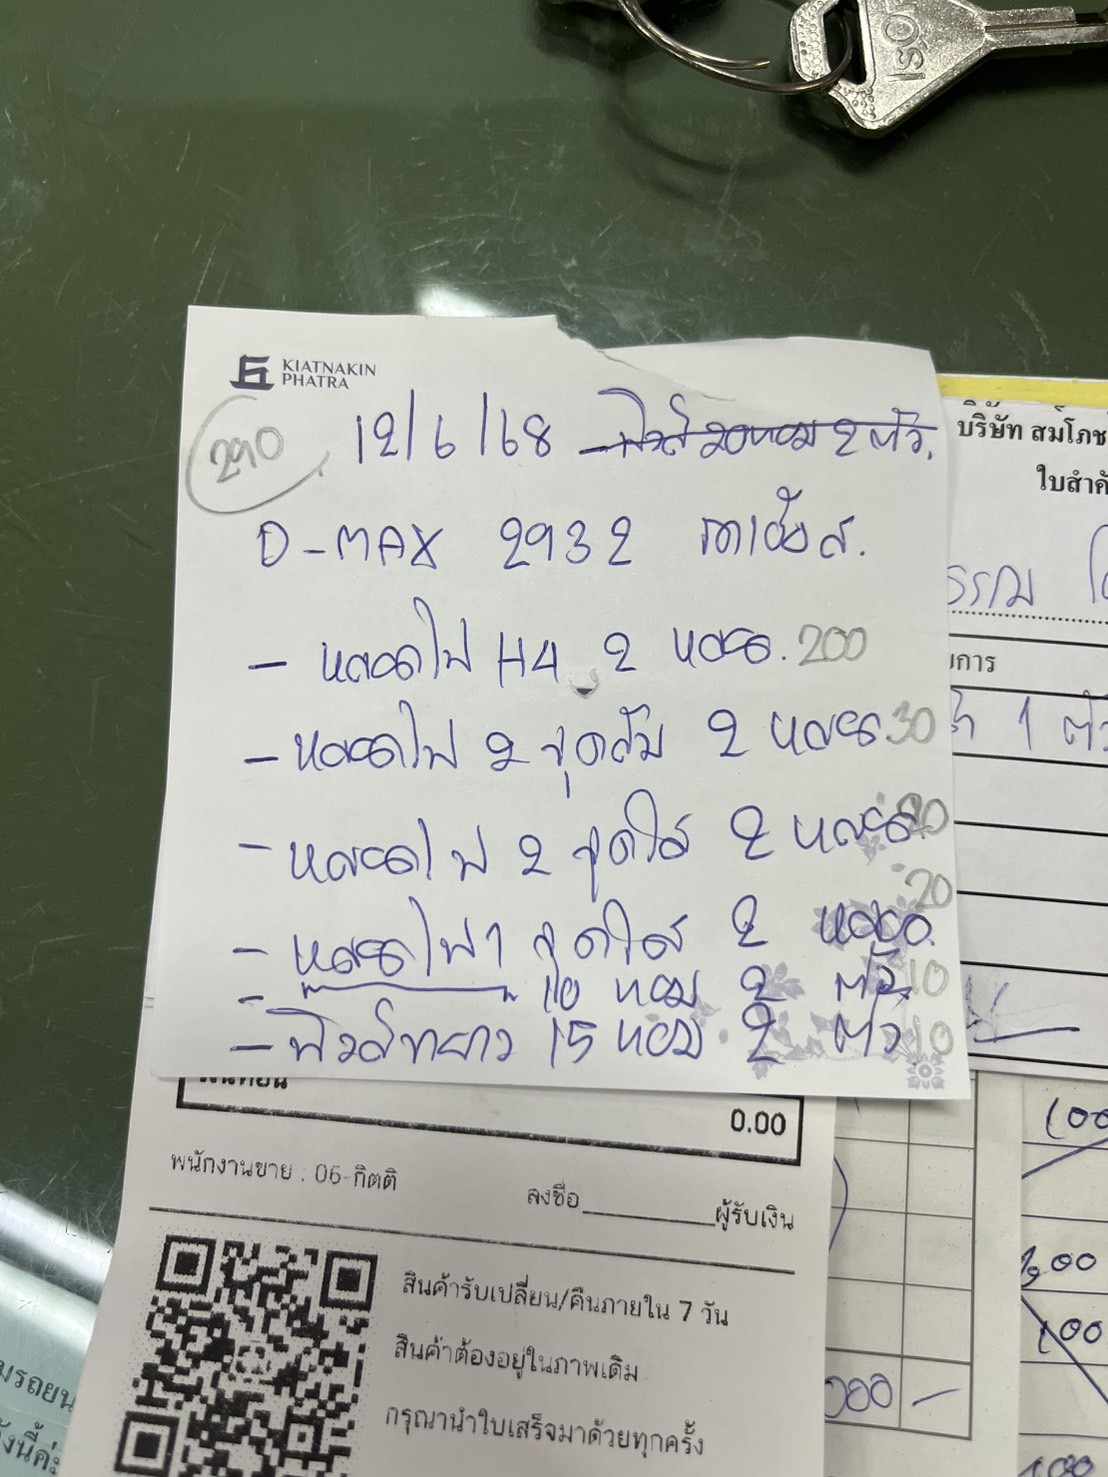 ISO
KIATNAKIN
PHATRA
290
12/6/68 - ฟิวส์ 20 หอม 2 ตัว.
D-MAX 2932
- หลอดไฟ H4 2 หลอด. 200
- หลอดไฟ 2 จุดส้ม 2 หลอด 30
- หลอดไฟ 2 จุดใส 2 หลอด 20
- หลอดไฟ 1 จุดใส 2 หลอด. 20
- 10 หอม 2 ตัว 10
- ฟิวส์ขายาว 15 หอม 2 ตัว 10
บริษัท สมโภช
ใบสำคั
รรณ
ยการ
1 ตัว
0.00
พนักงานขาย : 06-กิตติ
ลงชื่อ ผู้รับเงิน
สินค้ารับเปลี่ยน/คืนภายใน 7 วัน
สินค้าต้องอยู่ในภาพเดิม
กรุณานำใบเสร็จมาด้วยทุกครั้ง
มรถยน
ังนี้ค่ะ
100
100
000 -
100